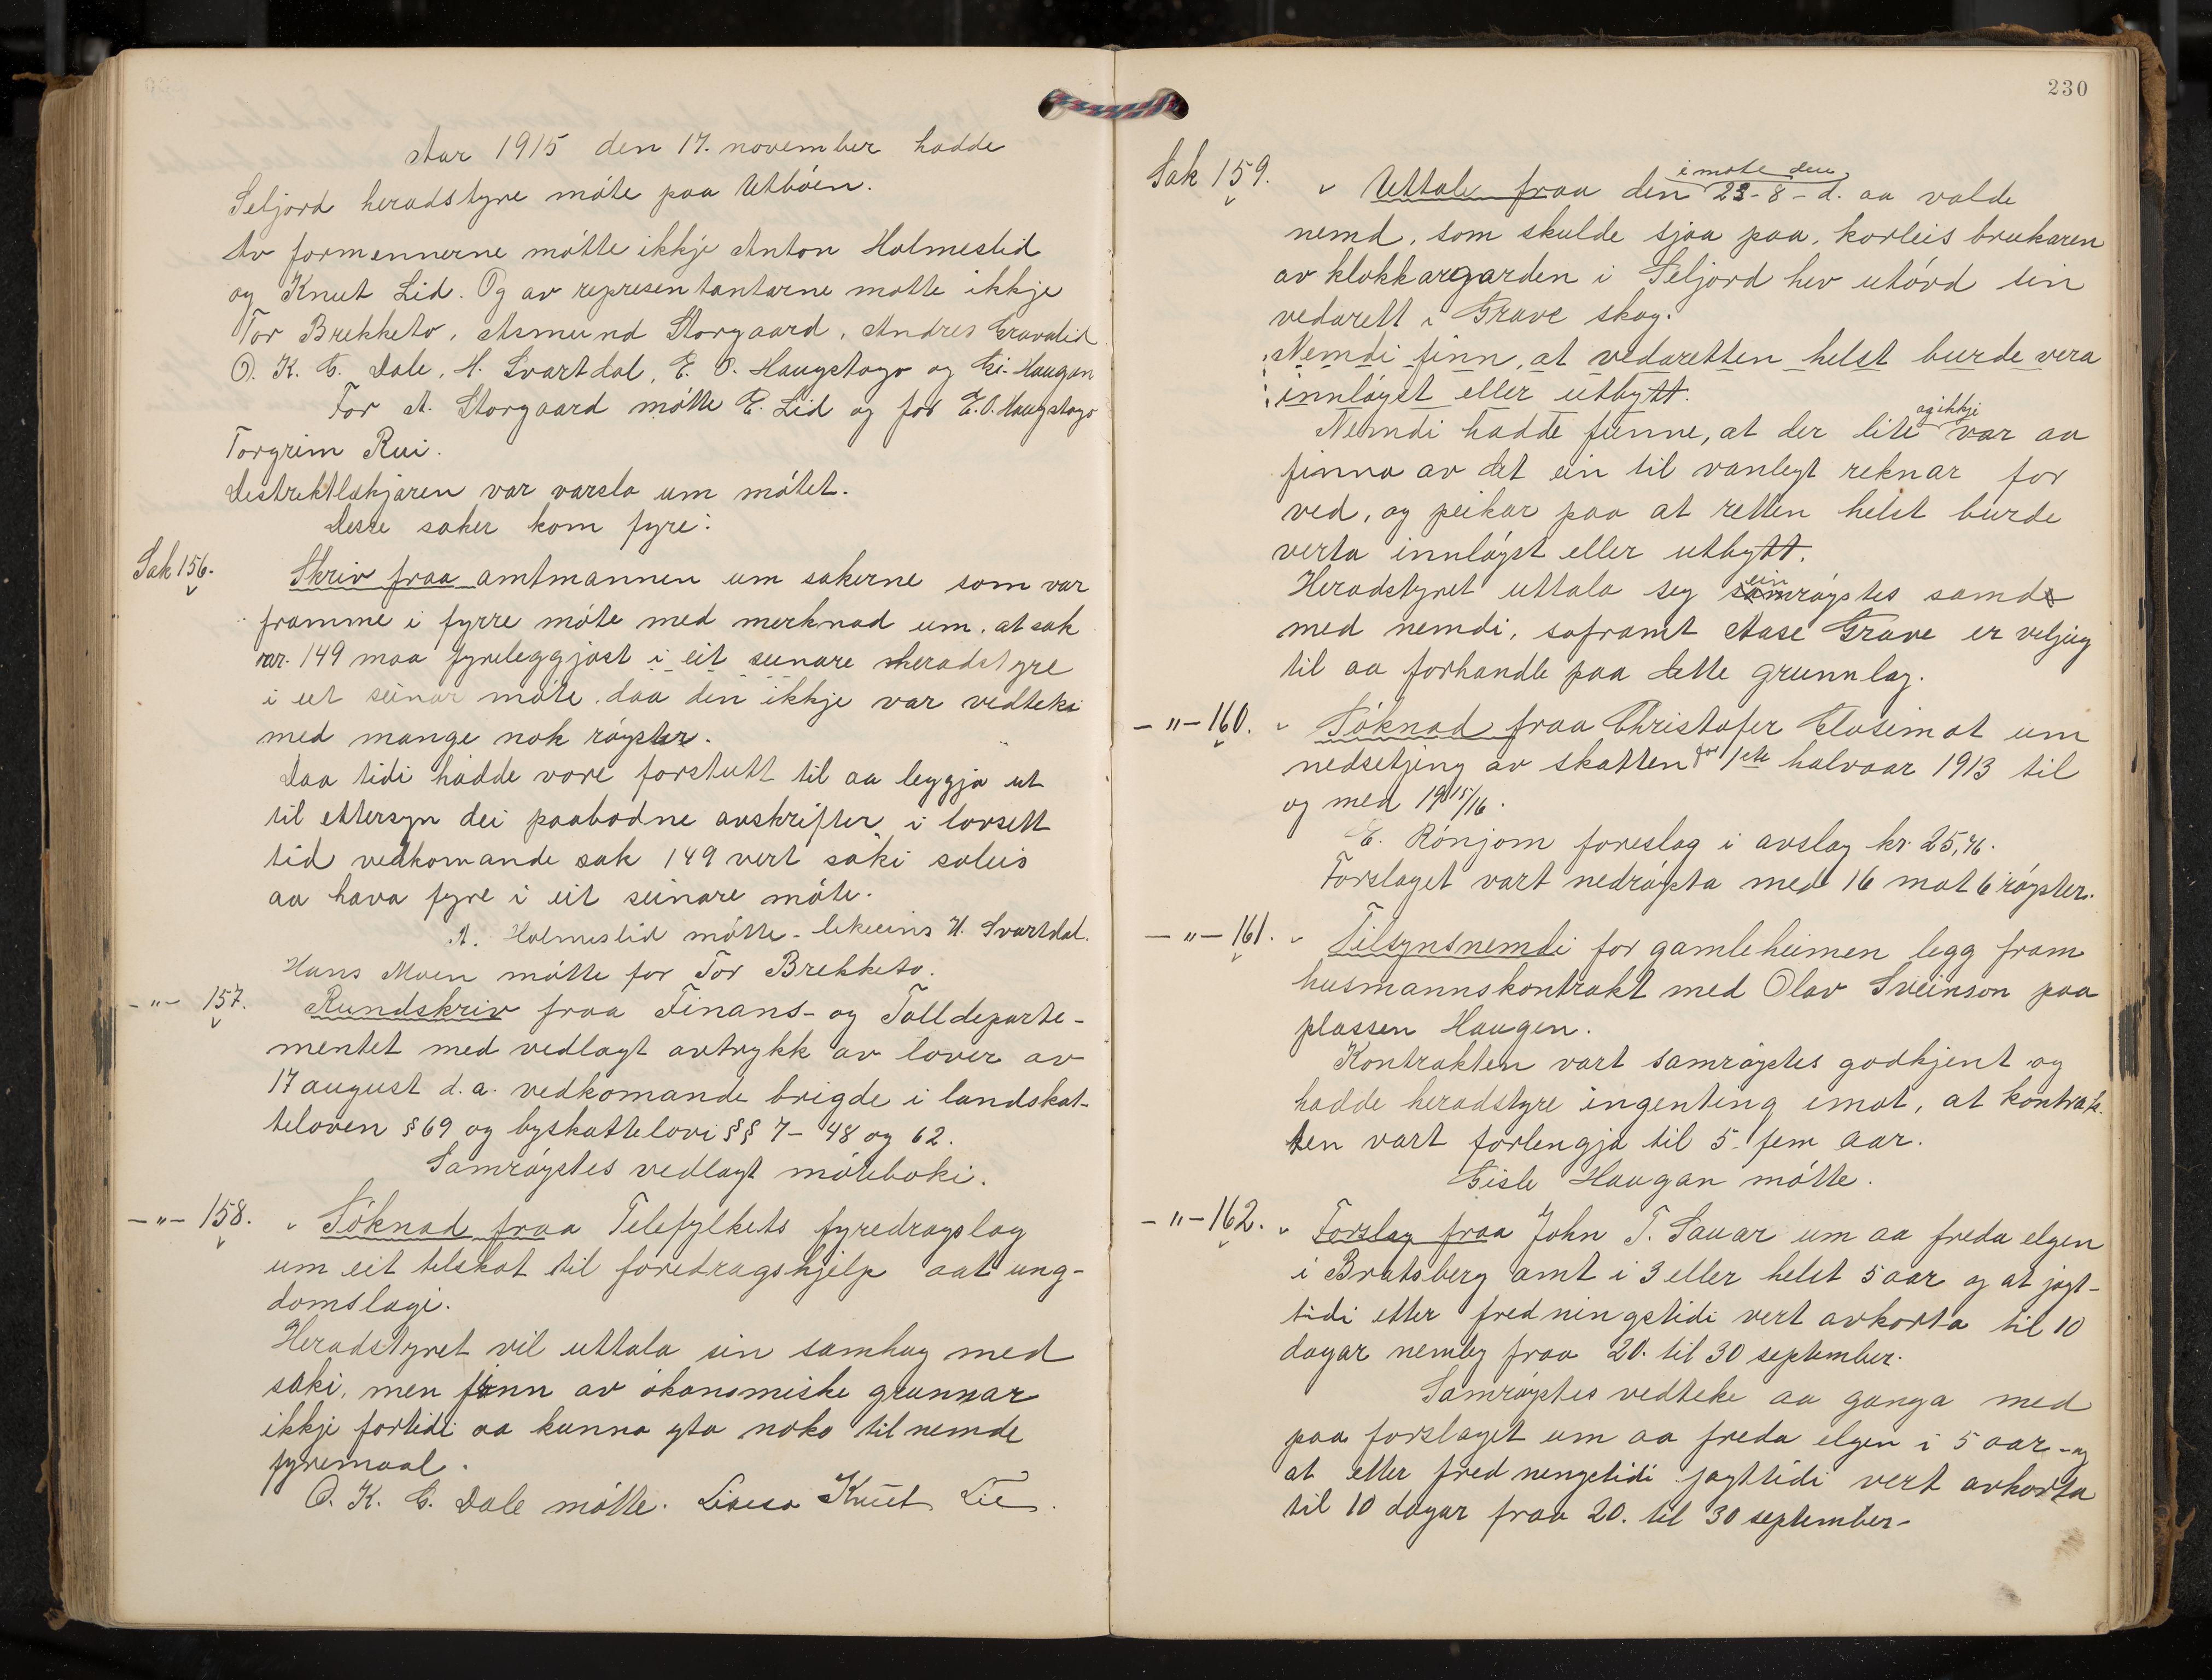 Aar 1915 den 17. november hadde
Seljord heradstyre móte paa Utbóen.
Av formennerne mótte ikkje Anton Holmeslid
og Knut Lid. Og av representantarne motte ikkje
Tor Brekketo, Asmund Storgaard, Andres Gravalid
O. K. G. Dale, H. Svartdal, E. O. Haugstogo og Gi. Haugan
For A. Storgaard mótte E. Lid og for E. O. Haugstogo
Torgrim Rui.
Destriktlækjaren var varsla um mótet.
Desse saker kom fyre:
Sak 156. Skriv fraa amtmannen um sakerne som var
framme i fyrre móte med merknad um, at sak
nr. 149 maa fyreleggjast i eit seinare heradstyre
i eit seinar móte, daa den ikkje var vedteki
med mange nok róyster.
Daa tidi hadde vore forstutt til aa leggja ut
til ettersyn dei paabodne avskrifter i lovsett
tid vedkomande sak 149 vert saki soleis
aa hava fyre i eit seinare móte.
A. Holmeslid mótte - likeeins H. Svartdal.
Hans Moen mótte for Tor Brekketo.
-"- 157. Rundskriv fraa Finans- og Tolldeparte-
mentet med vedlagt avtrykk av lover av
17 august d. a. vedkomande brigde i landskat-
teloven § 69 og byskattelovi §§ 7 - 48 og 62.
Samróystes vedlagt móteboki.
-"- 158. Sóknad fraa Telefylkets fyredragslag
um eit tilskot til foredragshjelp aat ung-
domslagi.
Heradstyret vil uttala sin samhug med
saki, men finn av ókonomiske grunnar
ikkje fortidi aa kunna yta noko til nemde
fyremaal.
O. K. G. Dale mótte. Knut Lid.
230
Sak 159. Uttale fraa den i mote den 23-8-d. aa valde
nemd, som skulde sjaa paa, korleis brukaren
av klokkargarden i Seljord hev utóvd sin
vedarett i Grave skog.
Nemdi finn, at vedaretten helst burde vera
innlóyst eller utbytt.
Nemdi hadde funne, at der lite og ikkje var aa
finna av det ein til vanlegt reknar for
ved, og peikar paa at retten helst burde
verta innlóyst eller utbytt.
Heradstyret uttala seg einróystes samd
med nemdi, soframt Aase Grave er viljug
til aa forhandle paa dette grunnlag.
-"- 160. Sóknad fraa Christofer Glosimot um
nedsetjing av skatten for 1ste halvaar 1913 til
og med 1915/16.
E. Rónjom foreslog i avslag kr. 25,76.
Forslaget vart nedróysta med 16 mot 6 róyster.
-"- 161. Tilsynsnemdi for gamleheimen legg fram
husmannskontrakt med Olav Sveinson paa
plassen Haugen.
Kontrakten vart samróystes godkjent og
hadde heradstyre ingenting imot, at kontrak-
ten vart forlengja til 5 - fem aar.
Gisle Haugan mótte.
-"- 162. Forslag fraa John T. Sauar um aa freda elgen
i Bratsberg amt i 3 eller helst 5 aar og at jagt-
tidi etter fredningstidi vert avkorta til 10
dagar nemleg fraa 20. til 30 september.
Samróystes vedteke aa ganga med
paa forslaget um aa freda elgen i 5 aar - og
at etter fredningstidi jagttidi vert avkorta
til 10 dagar fraa 20. til 30 september -